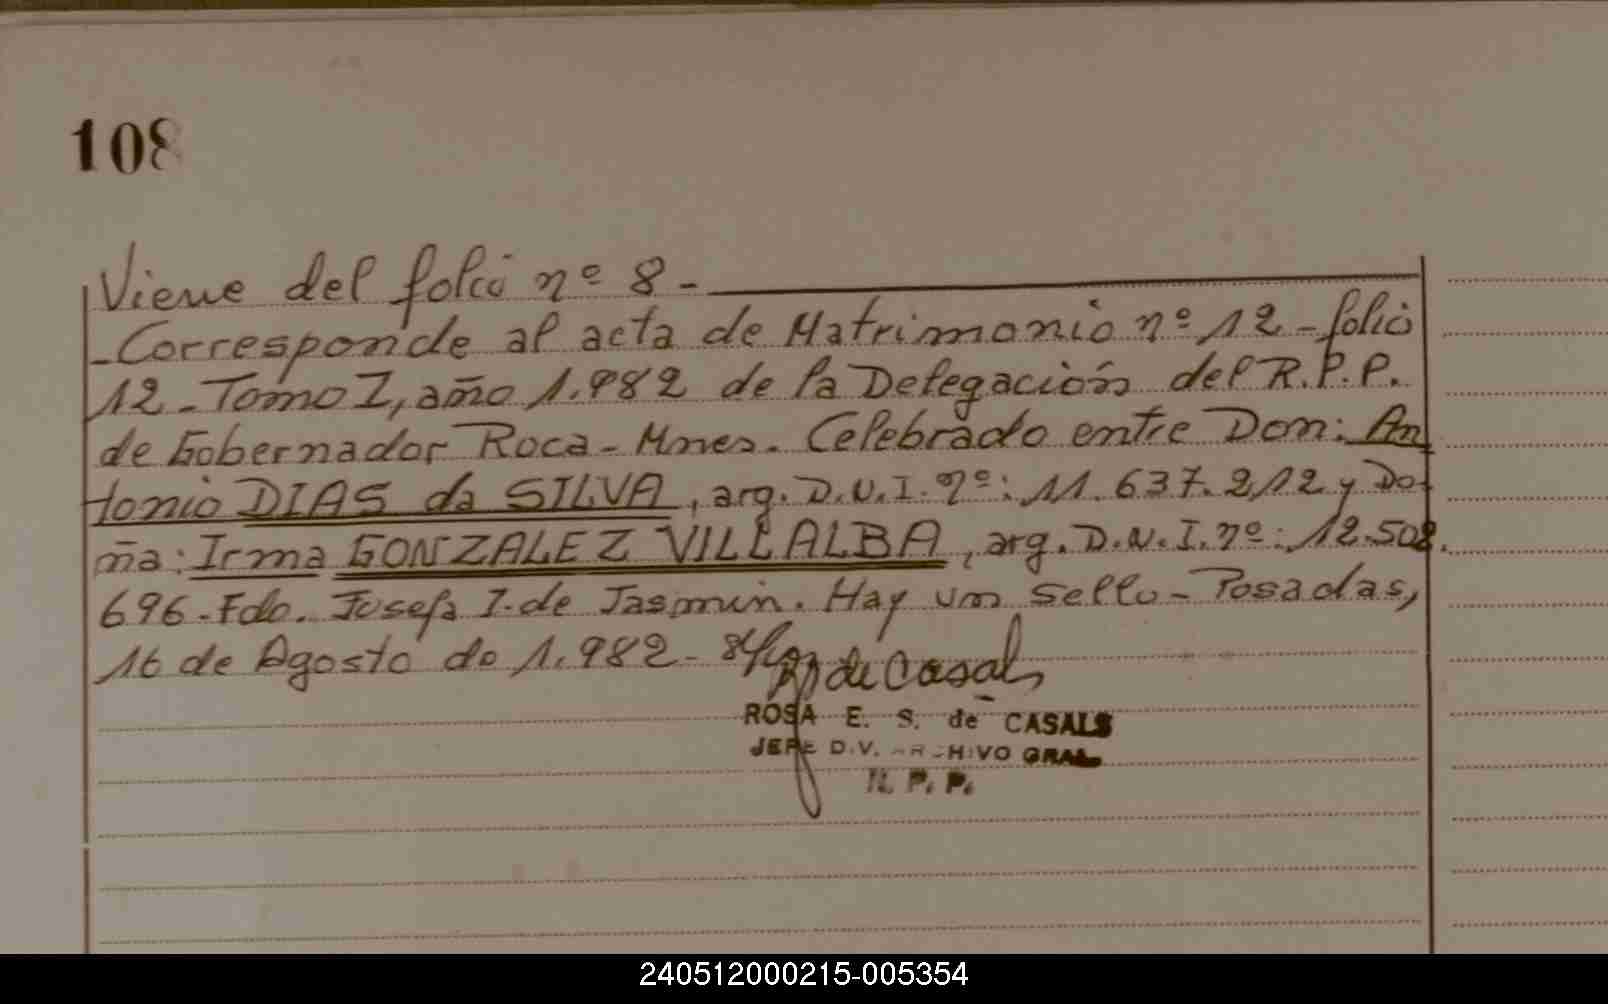 108
Viene del folio nº 8 -
- Corresponde al acta de Matrimonio nº 12 - folio
12 - Tomo I, año 1.982 de la Delegación del R.P.P.
de Gobernador Roca - Mnes. Celebrado entre Don: An
tonio DIAS da SILVA, arg. D.N.I. nº: 11.637.212 y Do-
ña: Irma GONZALEZ VILLALBA, arg. D.N.I. nº: 12.508.
696 - Fdo. Josefa I. de Jasmin. Hay un sello - Posadas,
16 de Agosto de 1.982 -
de Casals
ROSA E. S. de CASALS
JEFE DIV. ARCHIVO GRAL
R. P. P.
240512000215-005354